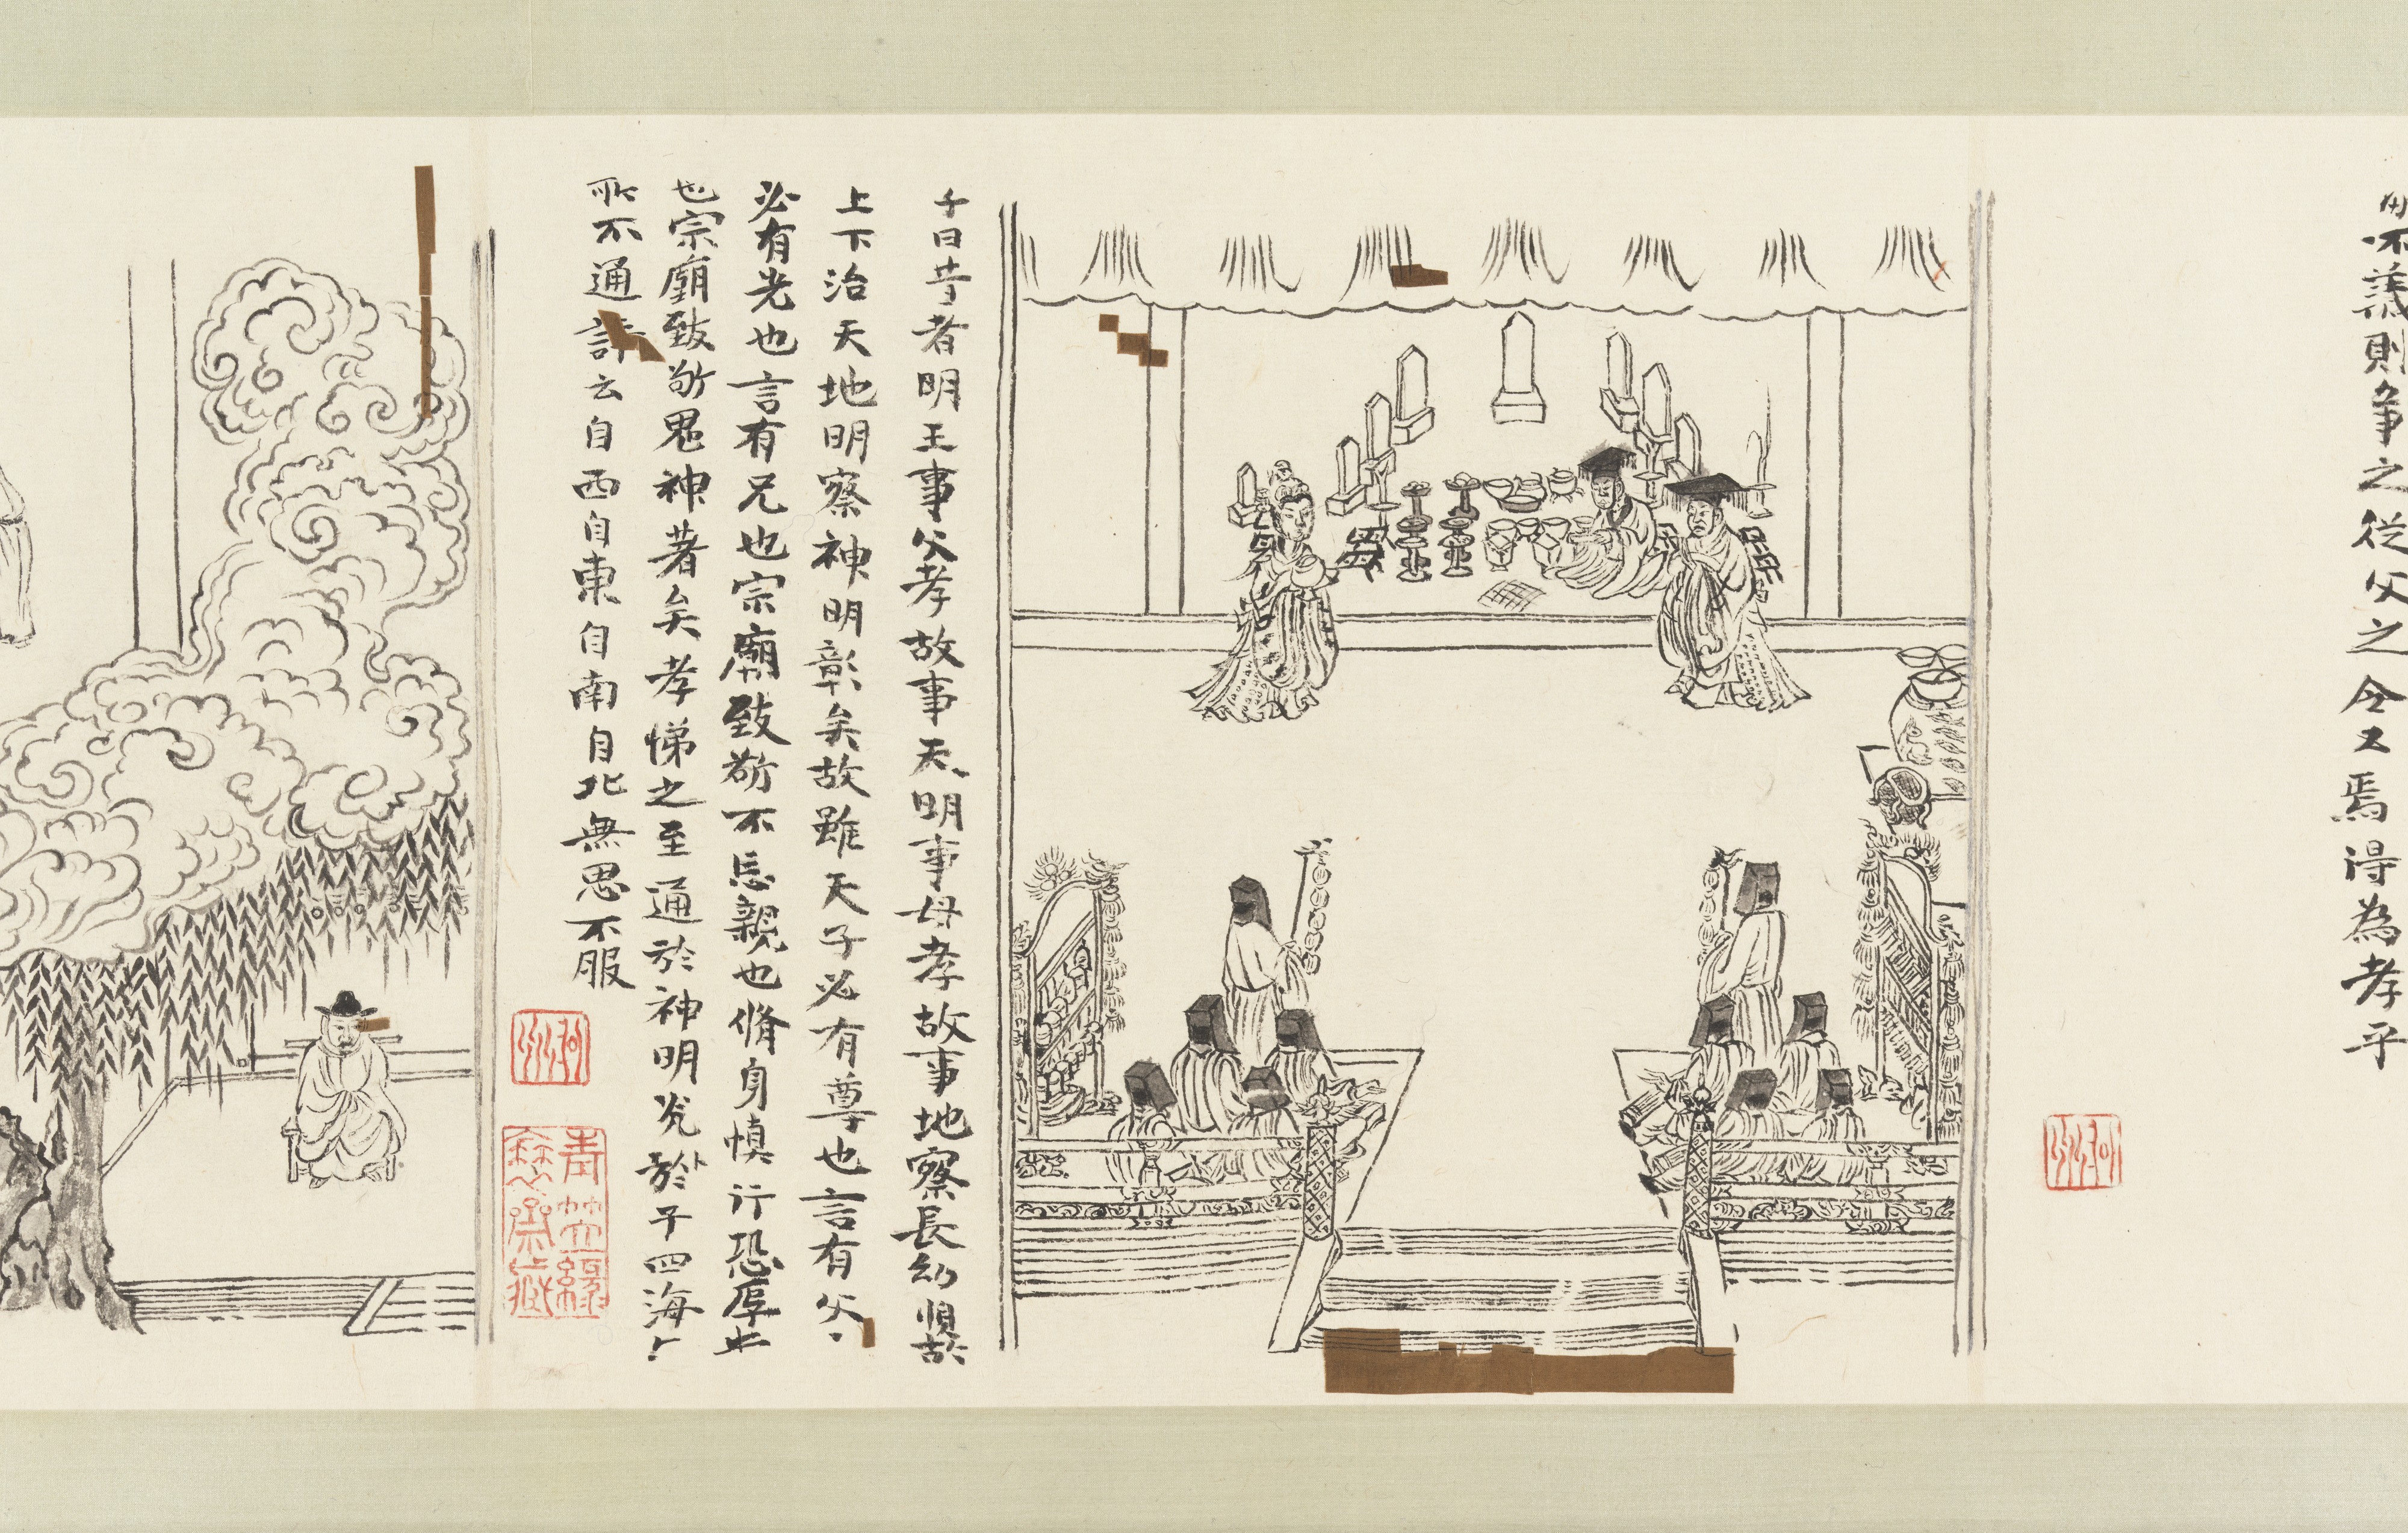 不義則爭之從父之令又焉得為孝乎
子曰昔者明王事父孝故事天明事母孝故事地察長幼順故
上下治天地明察神明彰矣故雖天子必有尊也言有父
必有先也言有兄也宗廟致敬不忘親也脩身慎行恐辱
也宗廟致敬鬼神著矣孝悌之至通於神明光於于四海
所不通詩云自西自東自南自北無思不服
青笠綠
蓑齋藏